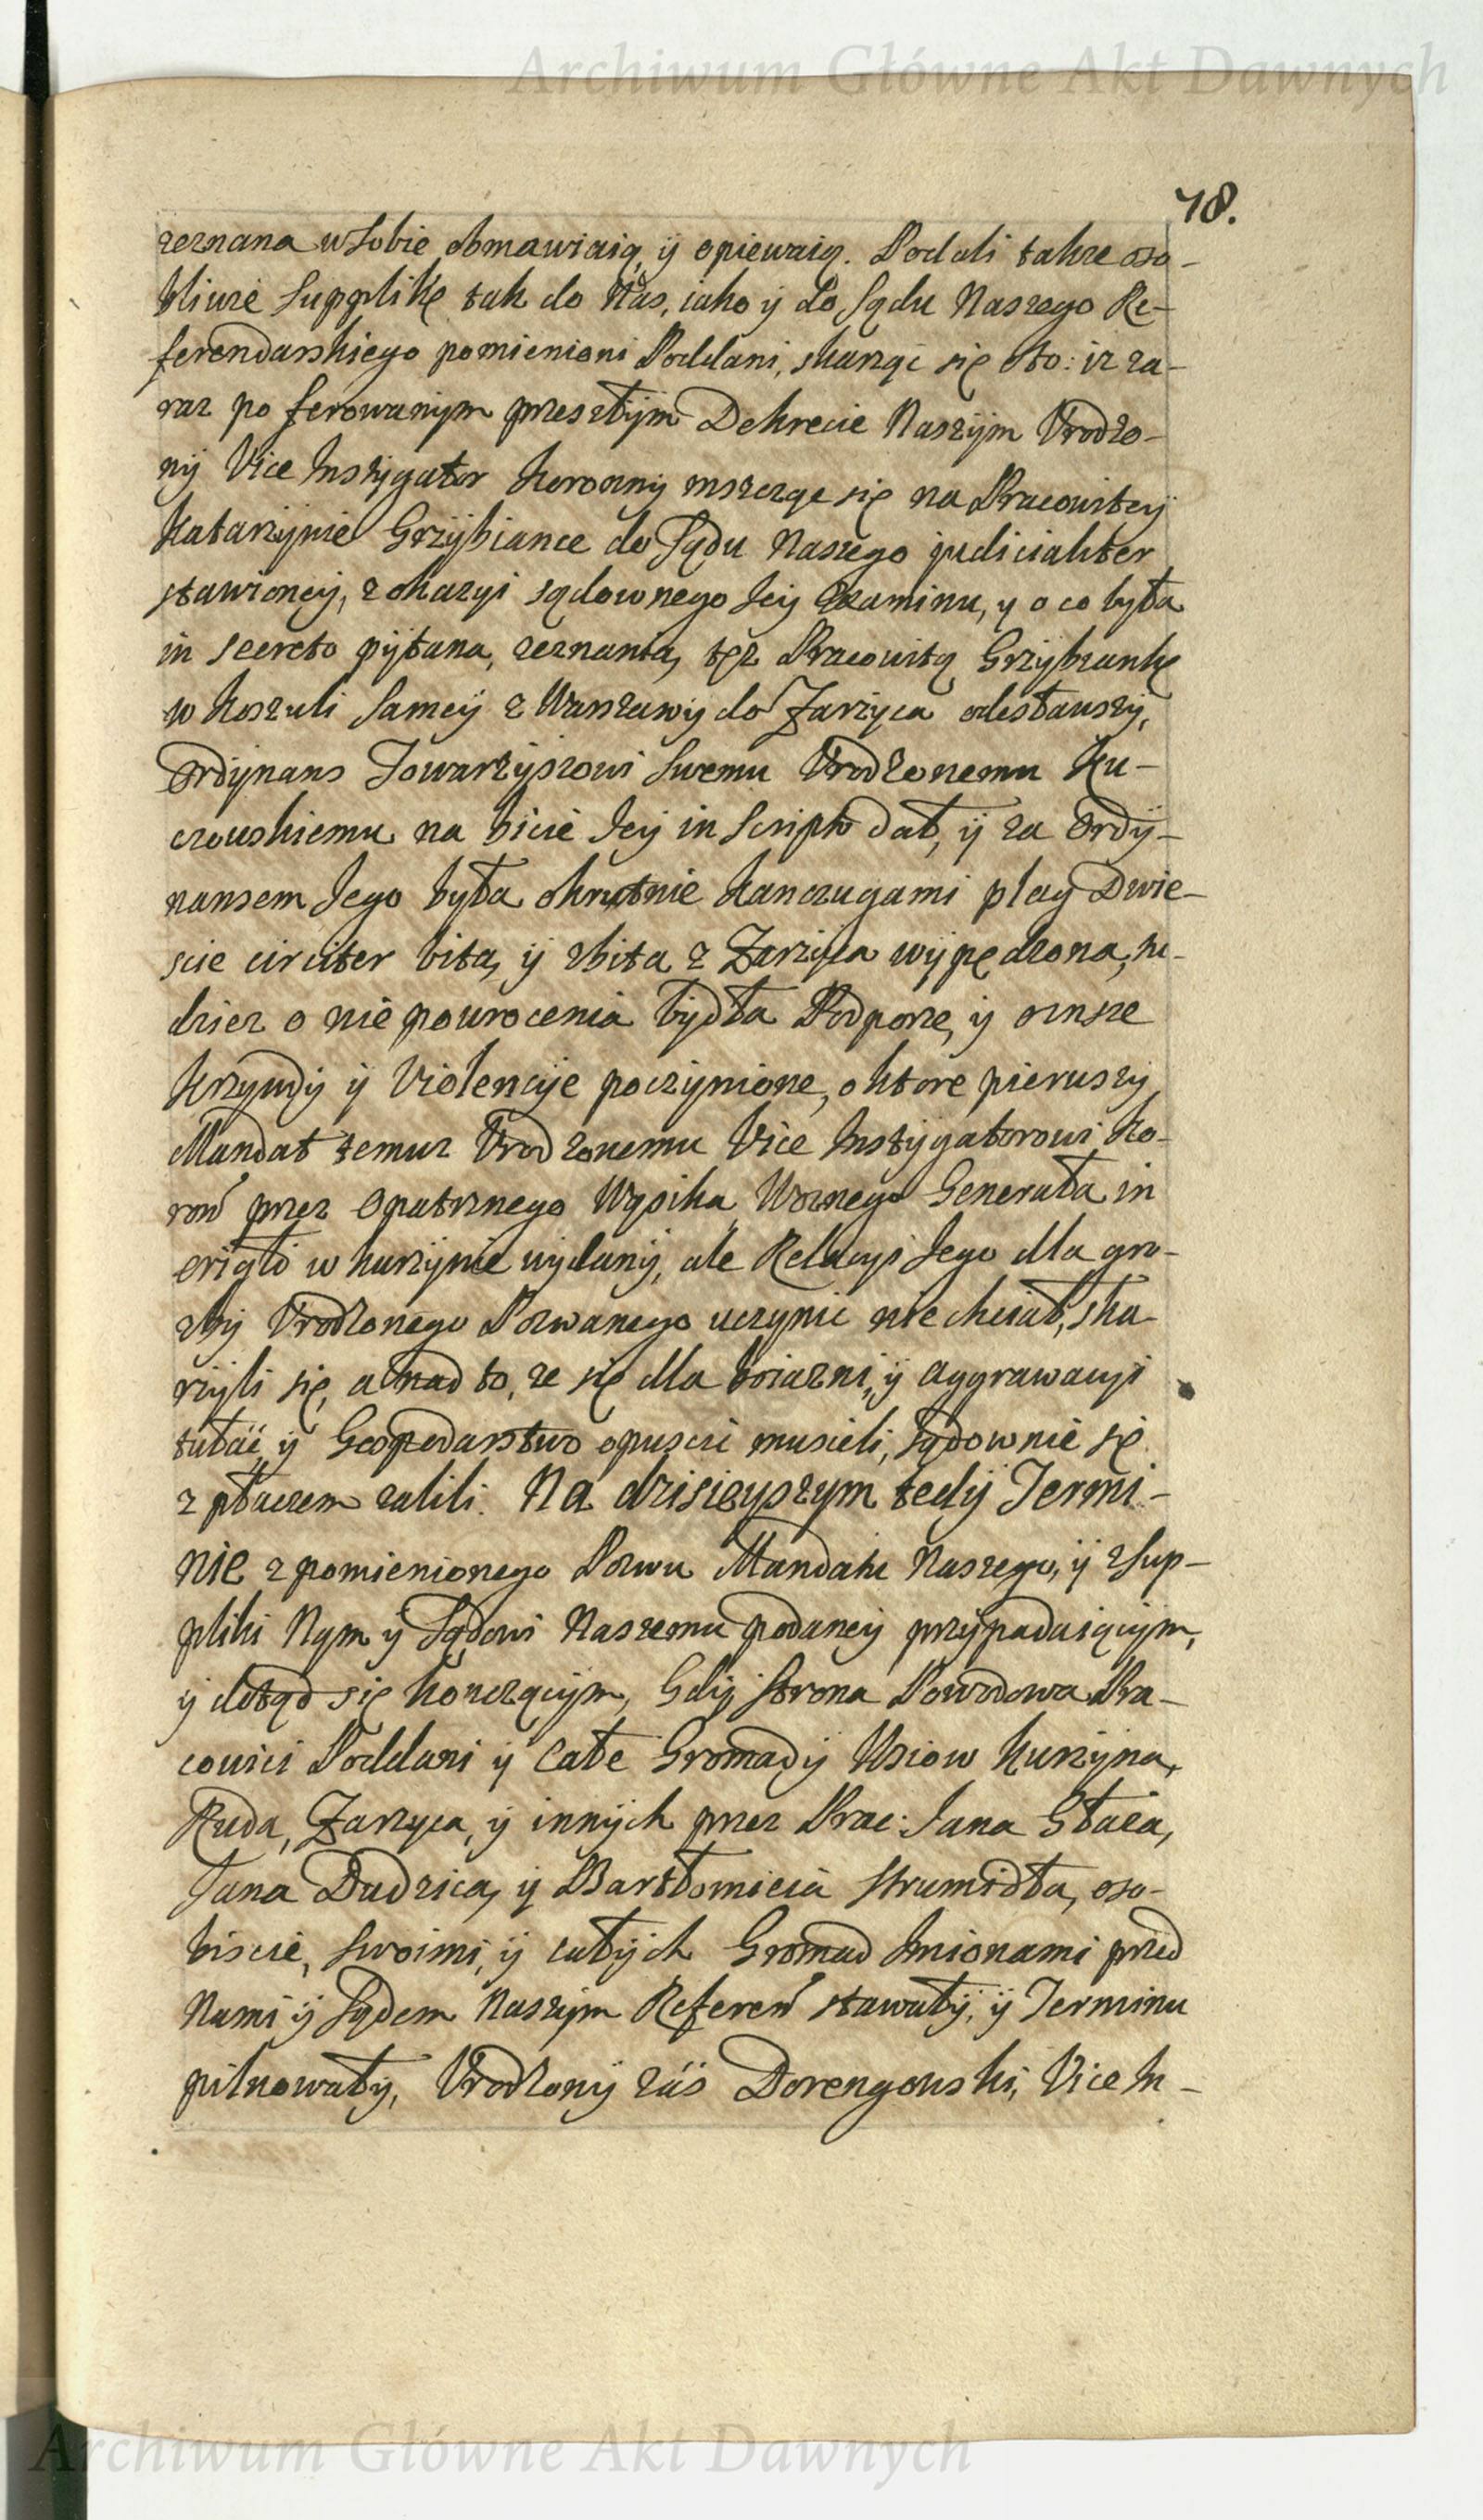 Archiwum Główne Akt Dawnych
78.
zeznana w Sobie obmawiaią, ÿ opiewaią. Podali także oso-
bliwie Supplikę tak do Nas, iako ÿ do Sądu Naszego Re-
ferendarskiego pomienioni Poddani, skarząc się oto: iz za-
raz po ferowanÿm przeszłÿm Dekrecie Naszÿm Vrodzo-
nÿ Vice Instÿgator Koronnÿ mszcząc się na Pracowiteÿ
Katarzÿnie Grzÿbiance do Sądu Naszego judicialiter
stawioneÿ, z okazyi sądownego Jeÿ Examinu, y o co była
in secreto pÿtana, zeznania, tęż Pracowitą Grzybiankę
w Koszuli Sameÿ z Warszawÿ do Zarzyca odesławszÿ,
Ordÿnans Towarzÿszowi Swemu Vrodzonemu Ku-
czewskiemu na bicie Jeÿ in Scripto dał, ÿ za Ordÿ-
nansem Jego była okrutnie Kanczugami plag Dwie-
scie circiter bita, ÿ zbita z Zarzÿca wÿpędzona, tu-
dziez o nie powrocenia bÿdła Podporze, ÿ o insze
Krzywdÿ ÿ Violencÿe poczÿnione, o ktore pierwszÿ
Mandat temuz Vrodzonemu Vice Instÿgatorowi Ko-
ron przez Opatrznego Wąsika Woznego Generała in
origli w kurzÿnie wÿdanÿ, ale Relacyi Jego dla gro-
zbÿ Vrodzonego Pozwanego uczynic nie chciał, ska-
rzÿli się, a nad to, ze się dla boiazni, ÿ aggrawacyi
tułać, ÿ Gospodarstwo opuscic musieli, sądownie się
z płaczem zalili. Na dzisieÿszym tedÿ Termi-
nie z pomienionego Pozwu Mandatu Naszego, ÿ z Sup-
pliki Nąm ÿ Sądowi Naszemu podaneÿ przÿpadaiącÿm,
ÿ dotąd się kończącÿm, Gdÿ Strona Powodowa Pra-
cowici Poddani ÿ Całe Gromadÿ Wsiow Kurzÿna,
Ruda, Zarzyca, ÿ innÿch przez Prac: Jana Staća,
Jana Dudzica, ÿ Bartłomieia Strumidła, oso-
biscie, Swoimi, ÿ całÿch Gromad Imionami przed
Nami ÿ Sądem Naszÿm Referen stawałÿ, ÿ Terminu
pilnowałÿ, Vrodzonÿ záś Dorengowski, Vice In-
Archiwum Główne Akt Dawnych